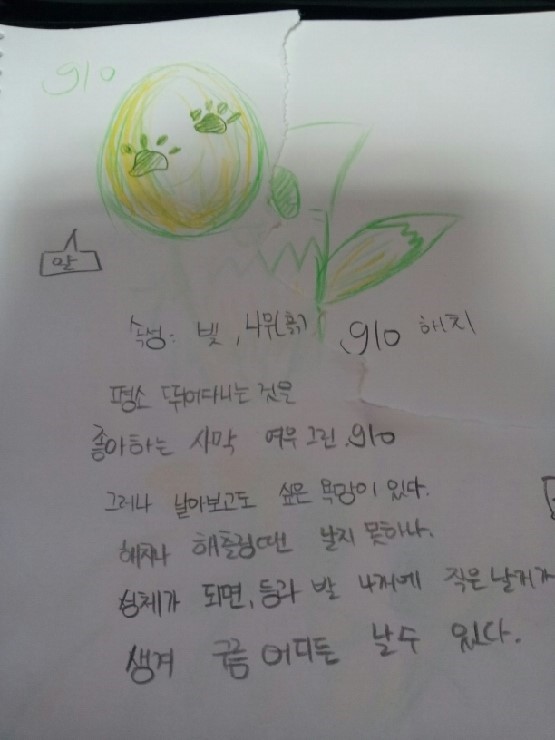 910
알
속성: 빛, 나무(흙) .910 해치
평소 뛰어다니는 것은
좋아하는 사막 여우 그린.910
그러나 날아보고도 싶은 욕망이 있다.
해치나 해츨링땐 날지 못하나.
성체가 되면, 등과 발 4개에 작은 날개가
생겨 어디든 날 수 있다.